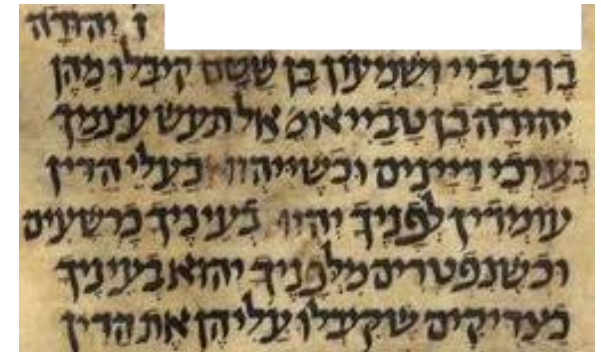 ז יהודה
בן טביי ושמעון בן שטח קיבלו מהן
יהודה בן טביי אומ' אל תעש עצמך
כערכי דיינים בעלי הדין
עומדין לפניך יהיו בעיניך כרשעים
וכשנפטרים מלפניך יהוא בעיניך
כצדיקים שקיבלו עליהן את הדין